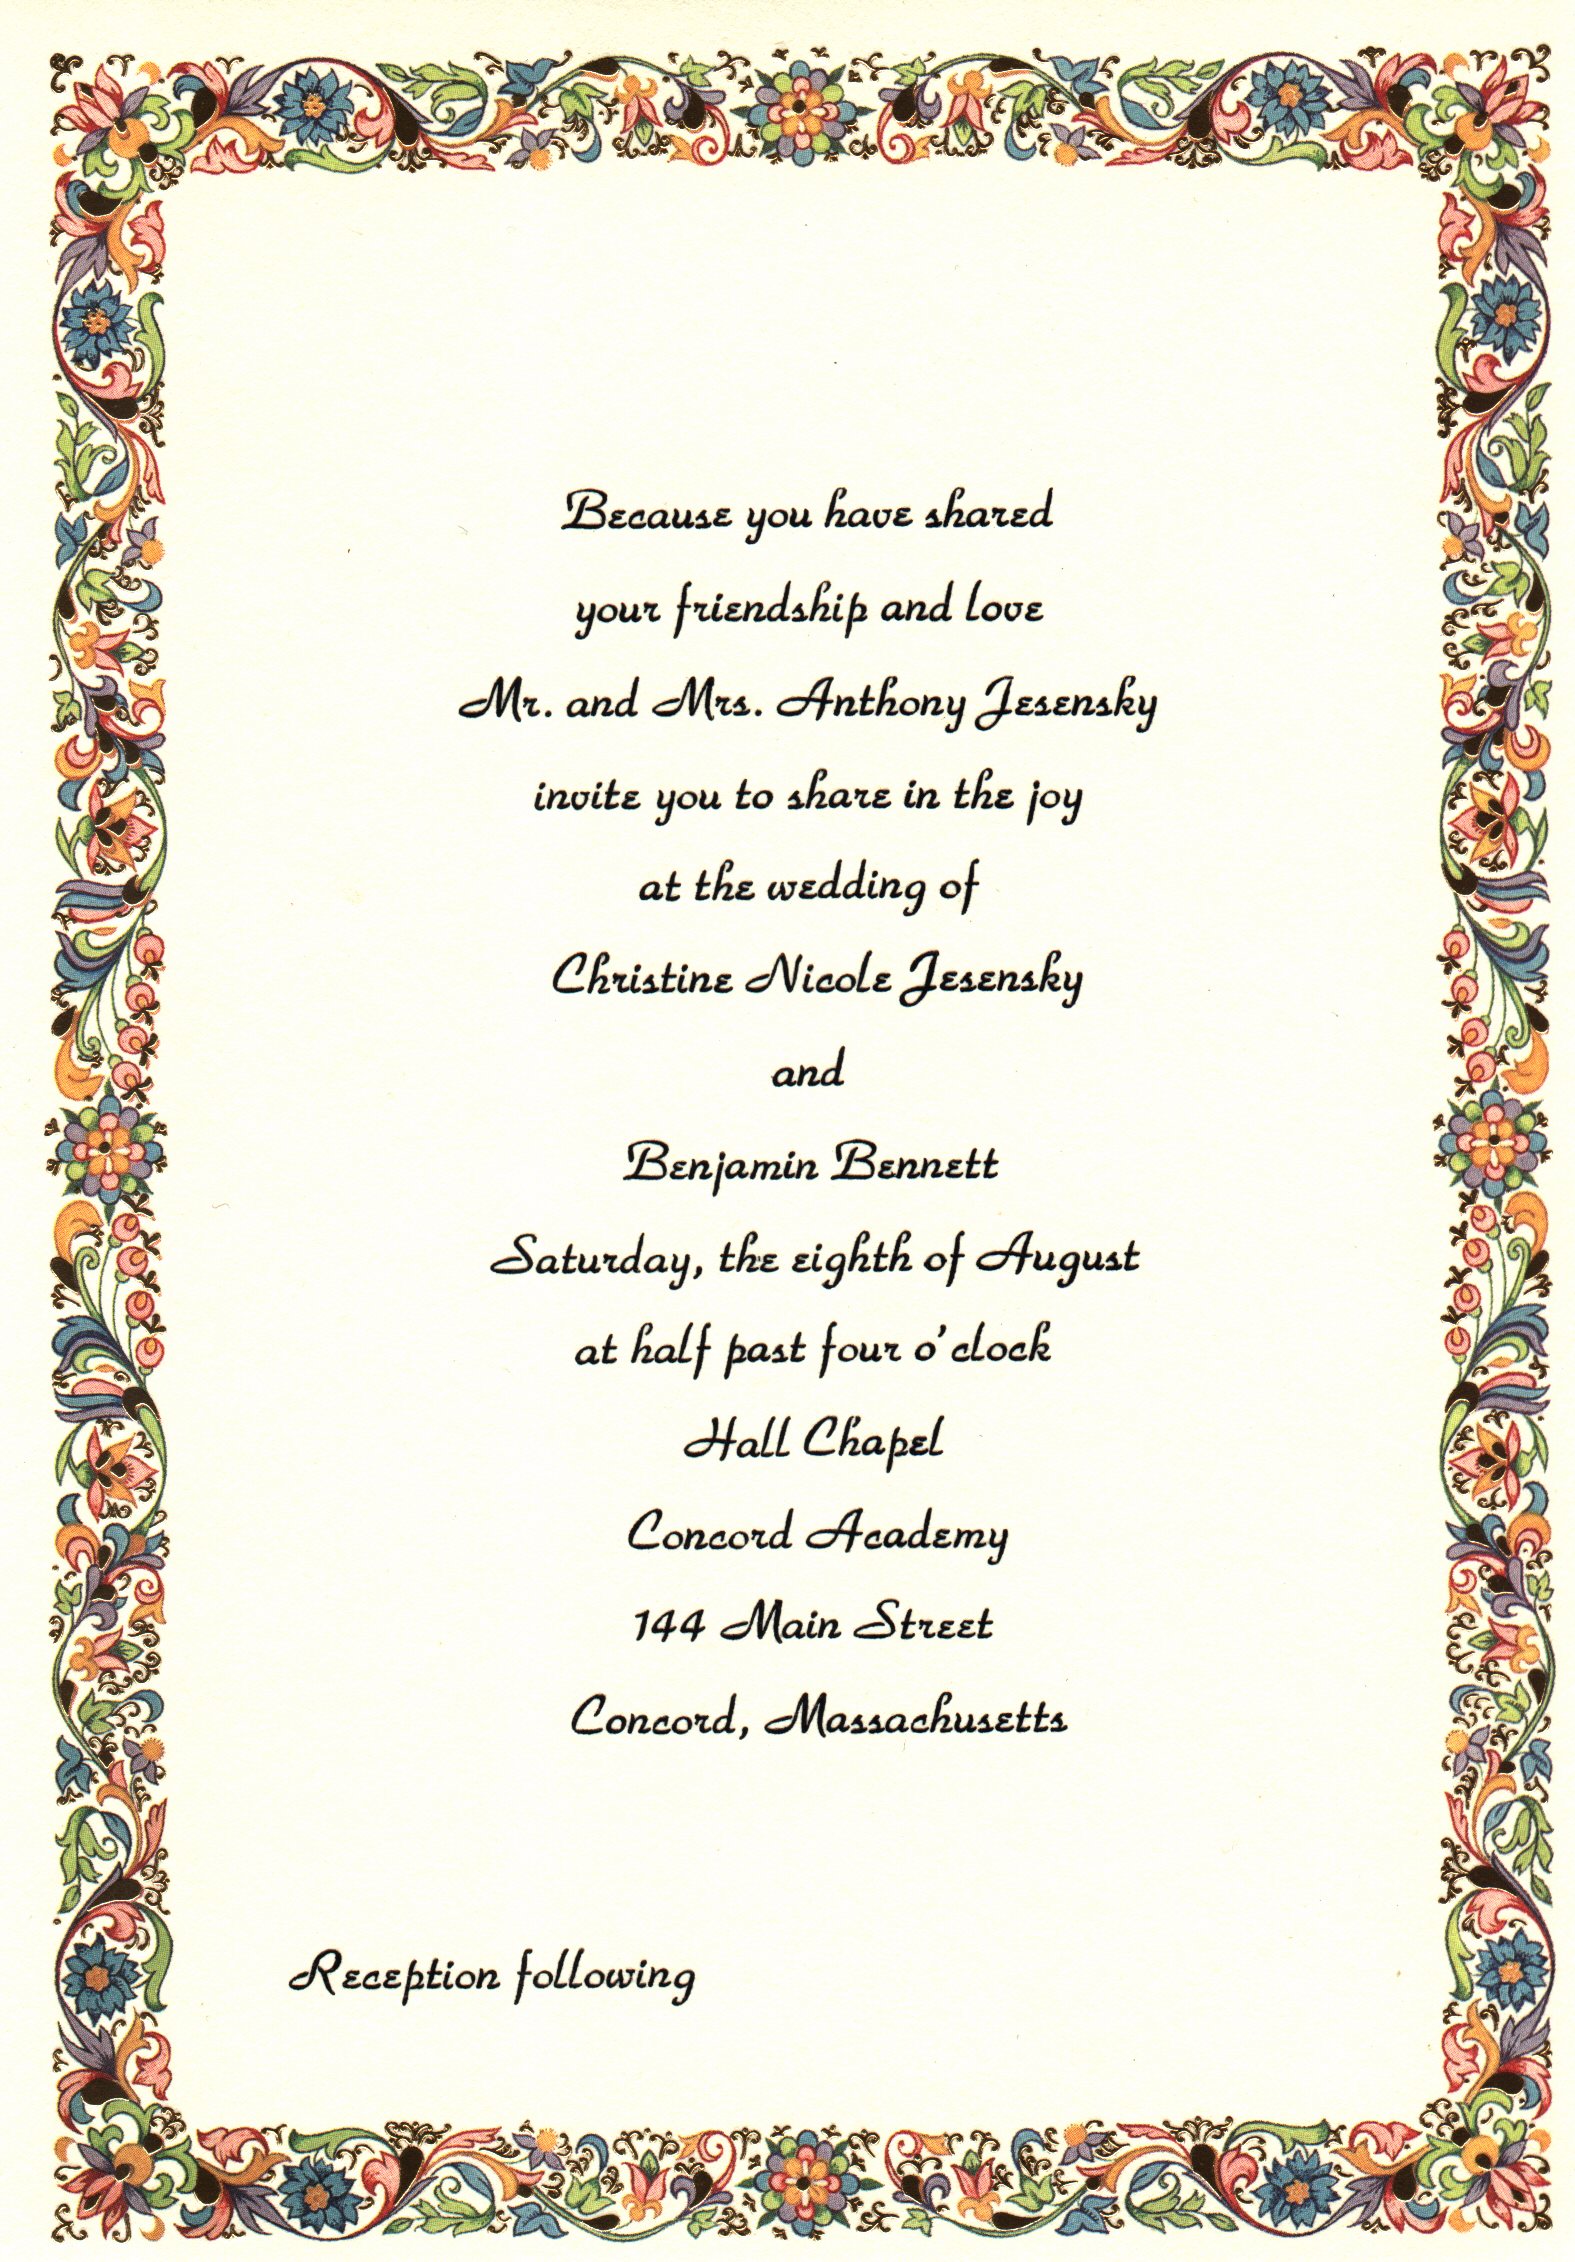 Because you have shared
your friendship and love
Mr. and Mrs. Anthony Jesensky
invite you to share in the joy
at the wedding of
Christine Nicole Jesensky
and
Benjamin Bennett
Saturday, the eighth of August
at half past four o'clock
Hall Chapel
Concord Academy
144 Main Street
Concord, Massachusetts
Reception following